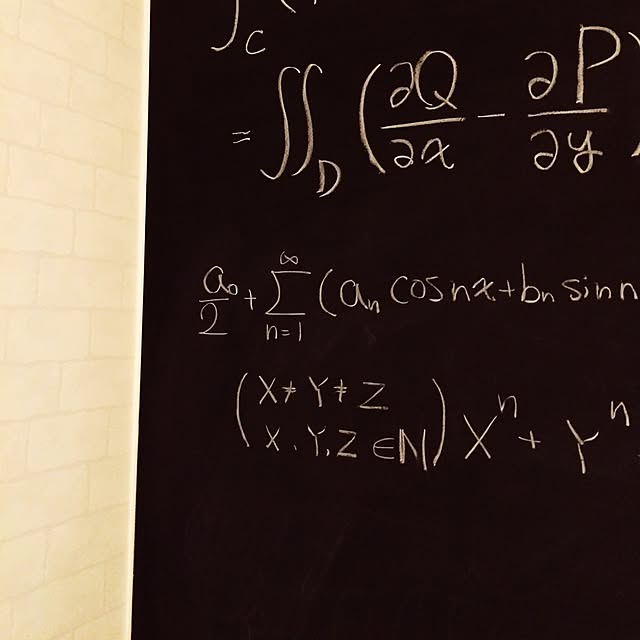 ∫_C (
= ∬_D (∂Q/∂x − ∂P/∂y)
a₀/2 + ∑_{n=1}^{∞} (aₙ cos nx + bₙ sin n
(X ≠ Y ≠ Z
X, Y, Z ∈ N) Xⁿ + Yⁿ